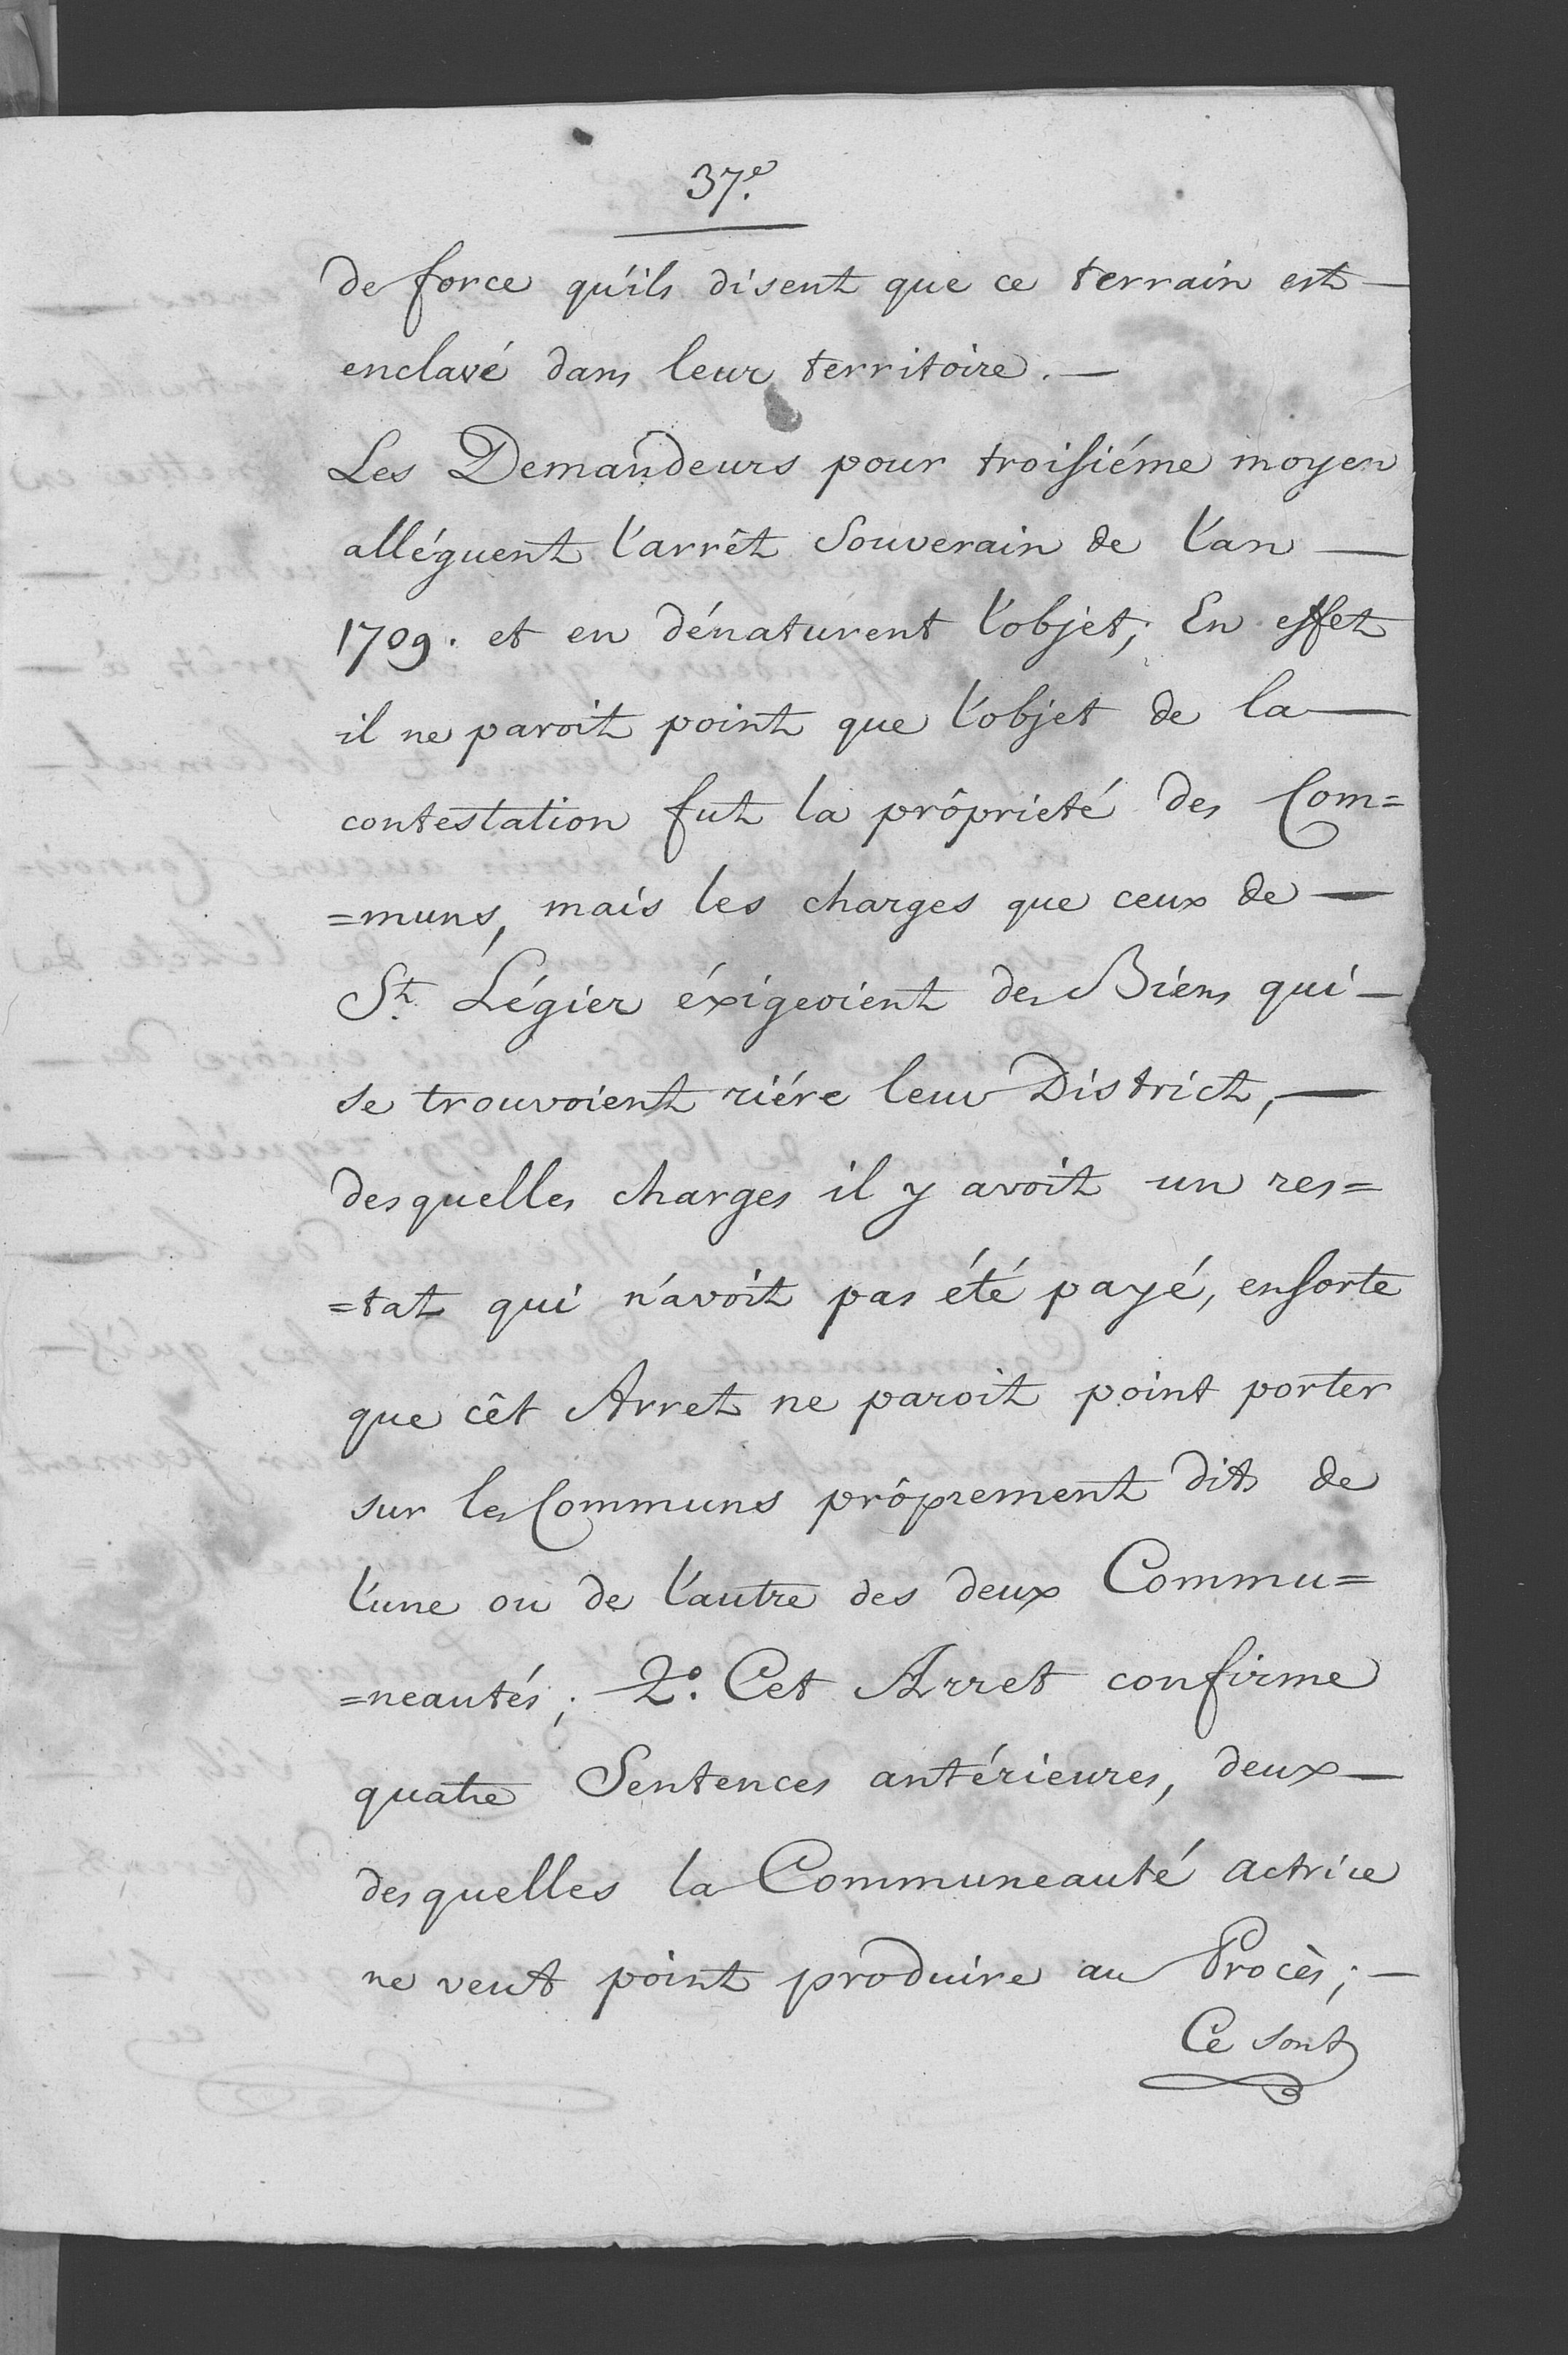 37.e
de force qu'ils disent que ce terrain est —
enclavé dans leur territoire. —
Les Demandeurs pour troisiéme moyen
alléguent l'arrêt Souverain de l'an —
1709. et en dénaturent l'objet; En effet
il ne paroit point que l'objet de la —
contestation fut la prôprieté des Com=
=muns, mais les charges que ceux de —
St. Légier éxigeoient des Biens qui —
se trouvoient riére leur District, —
desquelles charges il y avoit un res=
=tat qui n'avoit pas été payé, ensorte
que cêt Arret ne paroit point porter
sur les Communs prôprement dits de
l'une ou de l'autre des deux Commu=
=neautés; 2.° Cet Arret confirme
quatre Sentences antérieures, deux —
desquelles la Communeauté actrice
ne veut point produire au Procès; —
Ce sont